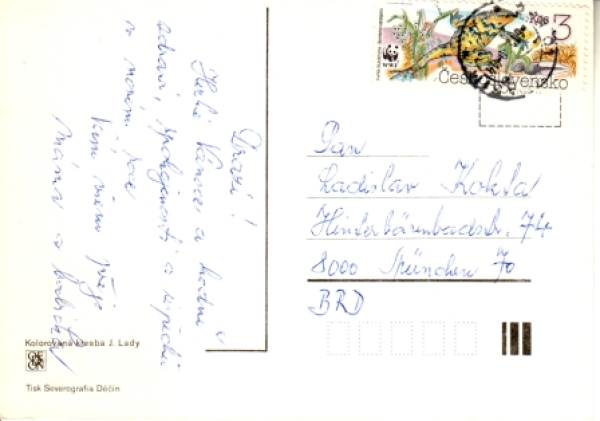 Drazí!
Hezké Vánoce a hodně
zdraví, spokojenosti a úspěchů
v novém roce
Vám všem přeje
Máma a babička
Pan
Ladislav Koksta
Hinterbärenbadstr. 74
8000 München 70
BRD
Kčs 3
Československo
WWF
Kolorovaná kresba J. Lady
Tisk Severografia Děčín